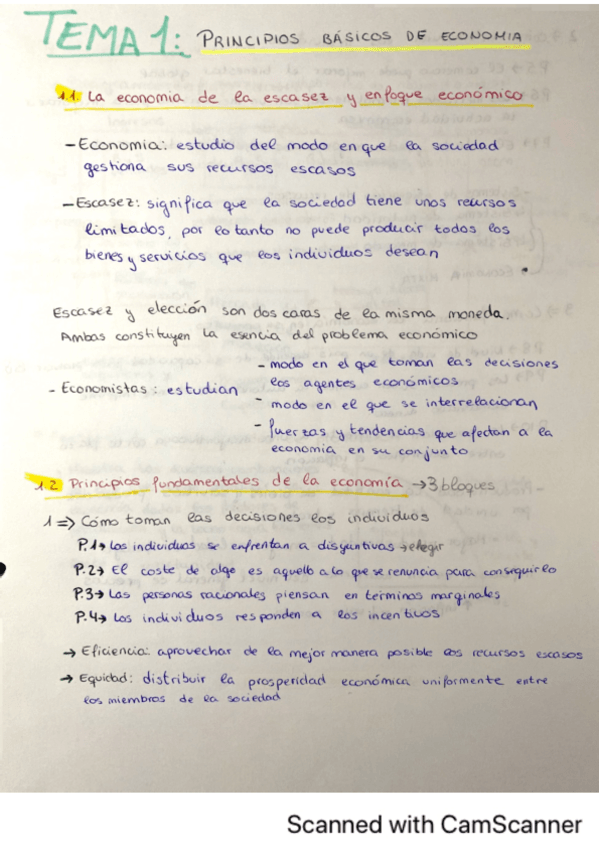 TEMA 1: PRINCIPIOS BÁSICOS DE ECONOMIA
1.1. La economia de la escasez y enfoque económico
- Economía: estudio del modo en que la sociedad
gestiona sus recursos escasos
- Escasez: significa que la sociedad tiene unos recursos
limitados, por lo tanto no puede producir todos los
bienes y servicios que los individuos desean
Escasez y elección son dos caras de la misma moneda.
Ambas constituyen la esencia del problema económico
- Economistas: estudian
- modo en el que toman las decisiones
los agentes económicos.
- modo en el que se interrelacionan
- fuerzas y tendencias que afectan a la
economía en su conjunto
1.2 Principios fundamentales de la economía → 3 bloques
1 => Cómo toman las decisiones los individuos
P.1→ Los individuos se enfrentan a disyuntivas → elegir
P.2→ El coste de algo es aquello a lo que se renuncia para conseguirlo
P.3→ Las personas racionales piensan en términos marginales
P.4→ Los individuos responden a los incentivos
→ Eficiencia: aprovechar de la mejor manera posible los recursos escasos
→ Equidad: distribuir la prosperidad económica uniformemente entre
los miembros de la sociedad
Scanned with CamScanner